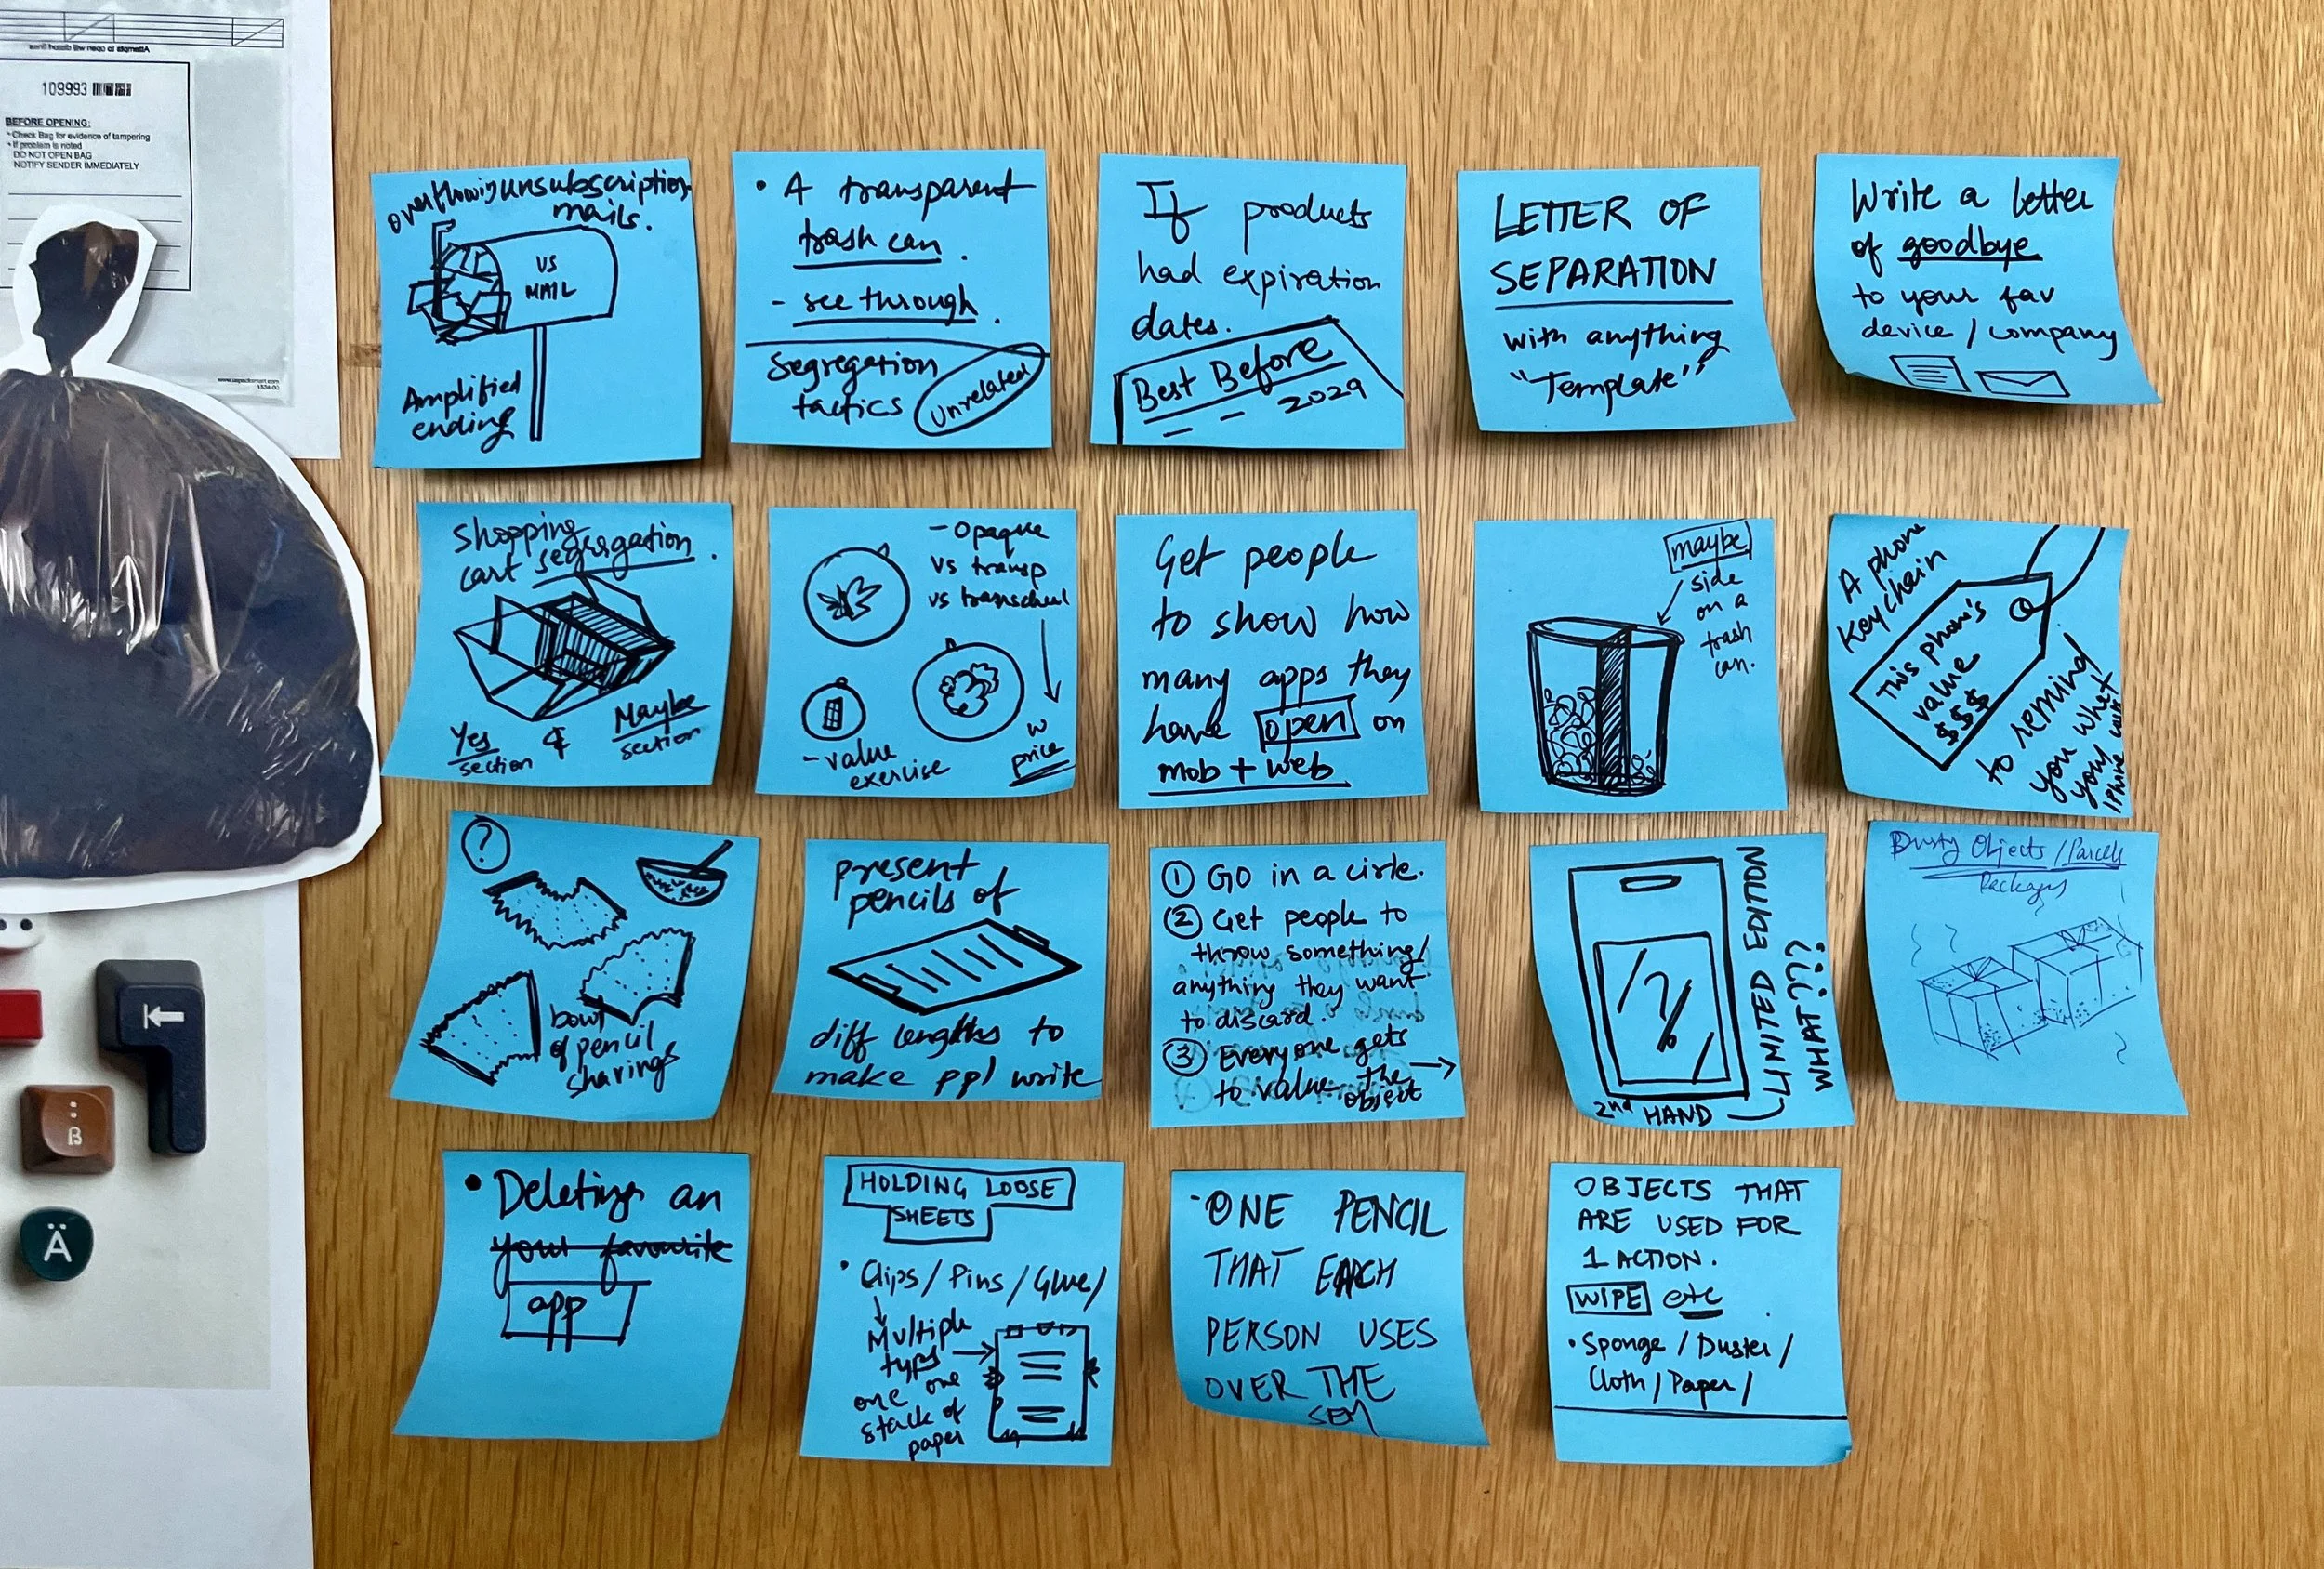 Attempts to open will distort lines
109993
BEFORE OPENING:
• Check Bag for evidence of tampering
• If problem is noted
DO NOT OPEN BAG
NOTIFY SENDER IMMEDIATELY
Ä
overflowing unsubscription
mails.
US
MAIL
Amplified
ending
• A transparent
trash can.
- see through.
Segregation
tactics
Unrelated
If products
had expiration
dates.
Best Before
2029
LETTER OF
SEPARATION
with anything
"Template"
Write a letter
of goodbye
to your fav
device / company
Shopping
cart segregation.
Yes
section
&
Maybe
section
- Opaque
vs transp
vs
w
price
- value
exercise
Get people
to show how
many apps they
have open on
mob + web
maybe
side
on a
trash
can.
A phone
keychain
This phone's
value
$$$
to remind
you what
your
iPhone
?
bowl
of pencil
sharings
present
pencils of
diff lengths to
make ppl write
① Go in a circle.
② Get people to
throw something/
anything they want
to discard.
③ Everyone gets
to value the
object
?
LIMITED EDITION
WHAT???
2nd HAND
Dusty Objects / Parcels
Packages
• Deleting an
your favourite
app
HOLDING LOOSE
SHEETS
• Clips / Pins / Glue /
Multiple
types
one one
stack of
paper
· ONE PENCIL
THAT EACH
PERSON USES
OVER THE
SEM
OBJECTS THAT
ARE USED FOR
1 ACTION.
WIPE etc
• Sponge / Duster /
Cloth / Paper /